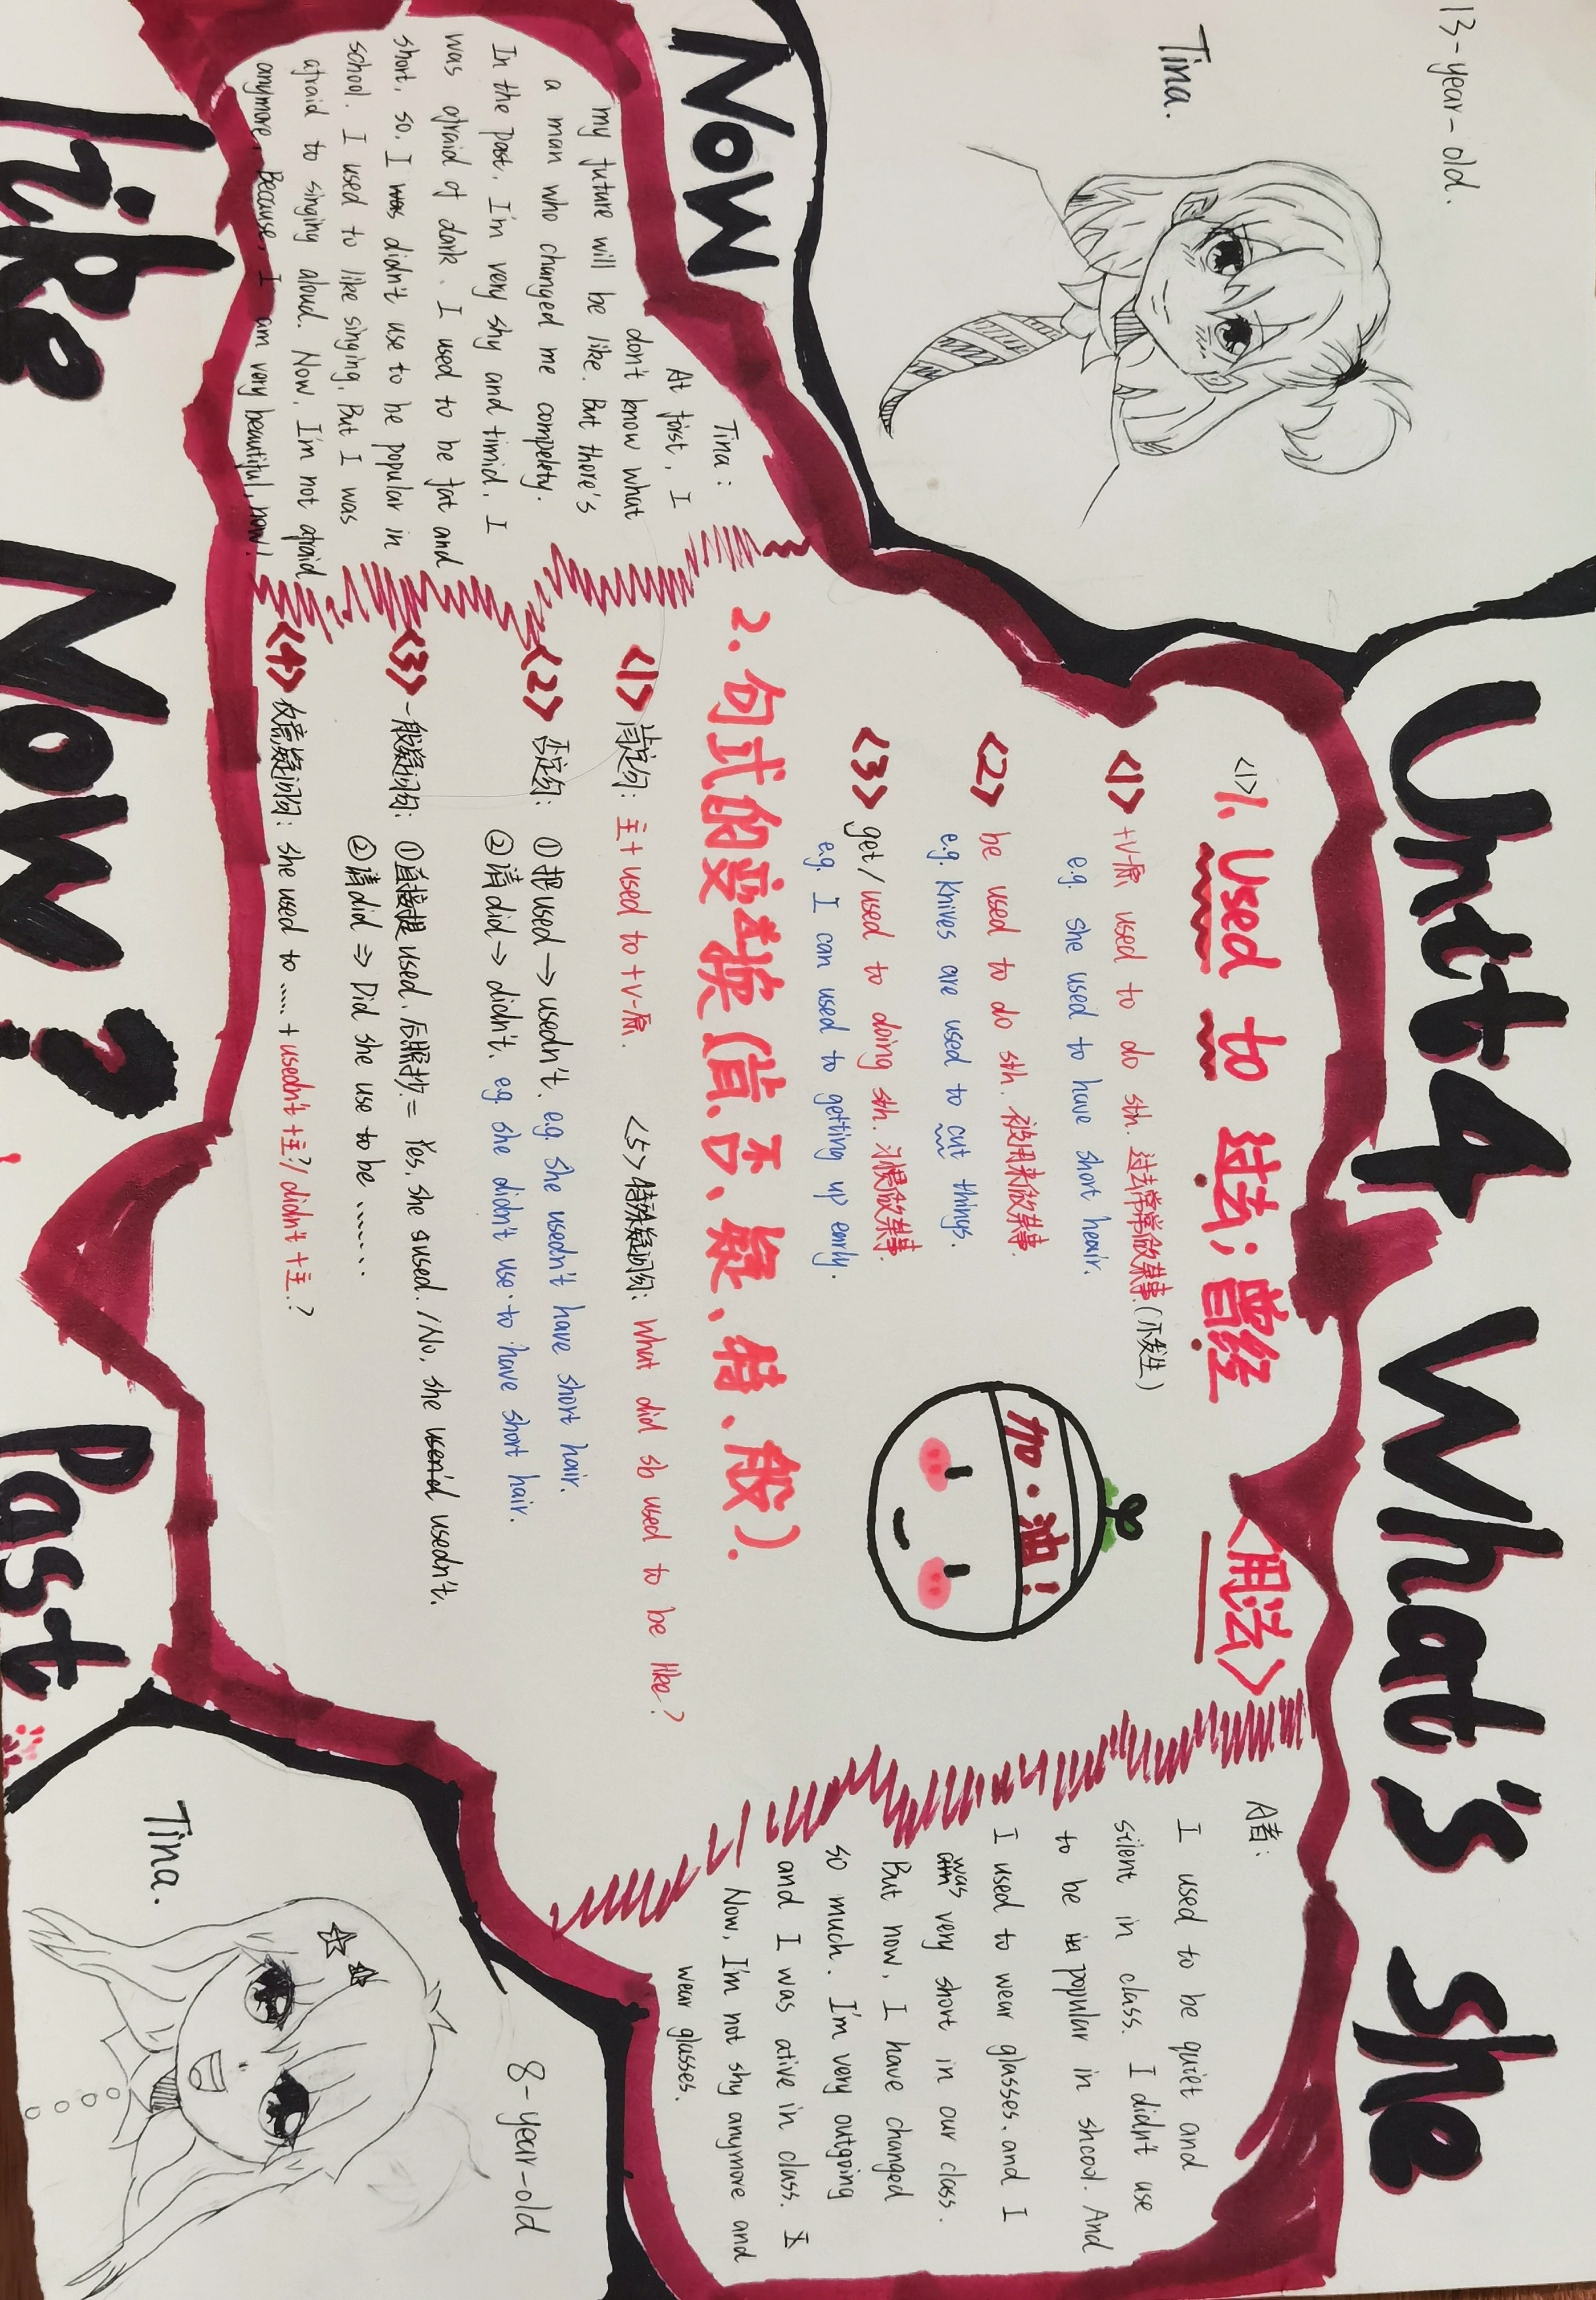 Unit4 What's she
like Now ?
Now
Past
13-year-old.
Tina.
Tina:
At first, I
don't know what
my future will be like. But there's
a man who changed me complety.
In the past, I'm very shy and timid. I
was afraid of dark. I used to be fat and
short, so, I was didn't use to be popular in
school. I used to like singing. But I was
afraid to singing aloud. Now, I'm not afraid
anymore, Because, I am very beautiful, now!
<1> 1. used to 过去; 曾经 <用法>
<1> +v-原 used to do sth. 过去常常做某事.(不发生)
e.g. she used to have short heair.
<2> be used to do sth. 被用来做某事.
e.g. knives are used to cut things.
<3> get/used to doing sth. 习惯做某事.
e.g. I can used to getting up early.
加·油!
2. 句式的变换(肯、否、疑、特、般).
<1> 肯定句: 主+used to+v-原.
<5> 特殊疑问句: What did sb used to be like?
<2> 否定句: ①把used→usedn't. e.g. she usedn't have short hair.
②请did→didn't. e.g. she didn't use to have short hair.
<3> 一般疑问句: ①直接提used. 后照抄.= Yes, she sused./No, she usedn't.
②请did⇒Did she use to be ......
<4> 反意疑问句: she used to .....+usedn't+主?/didn't+主.?
A者:
I used to be quiet and
silent in class. I didn't use
to be in popular in shcool. And
I used to wear glasses. and I
was very short in our class.
But now, I have changed
so much. I'm very outgoing
and I was ative in class. I
Now, I'm not shy anymore and
wear glasses.
8-year-old
Tina.